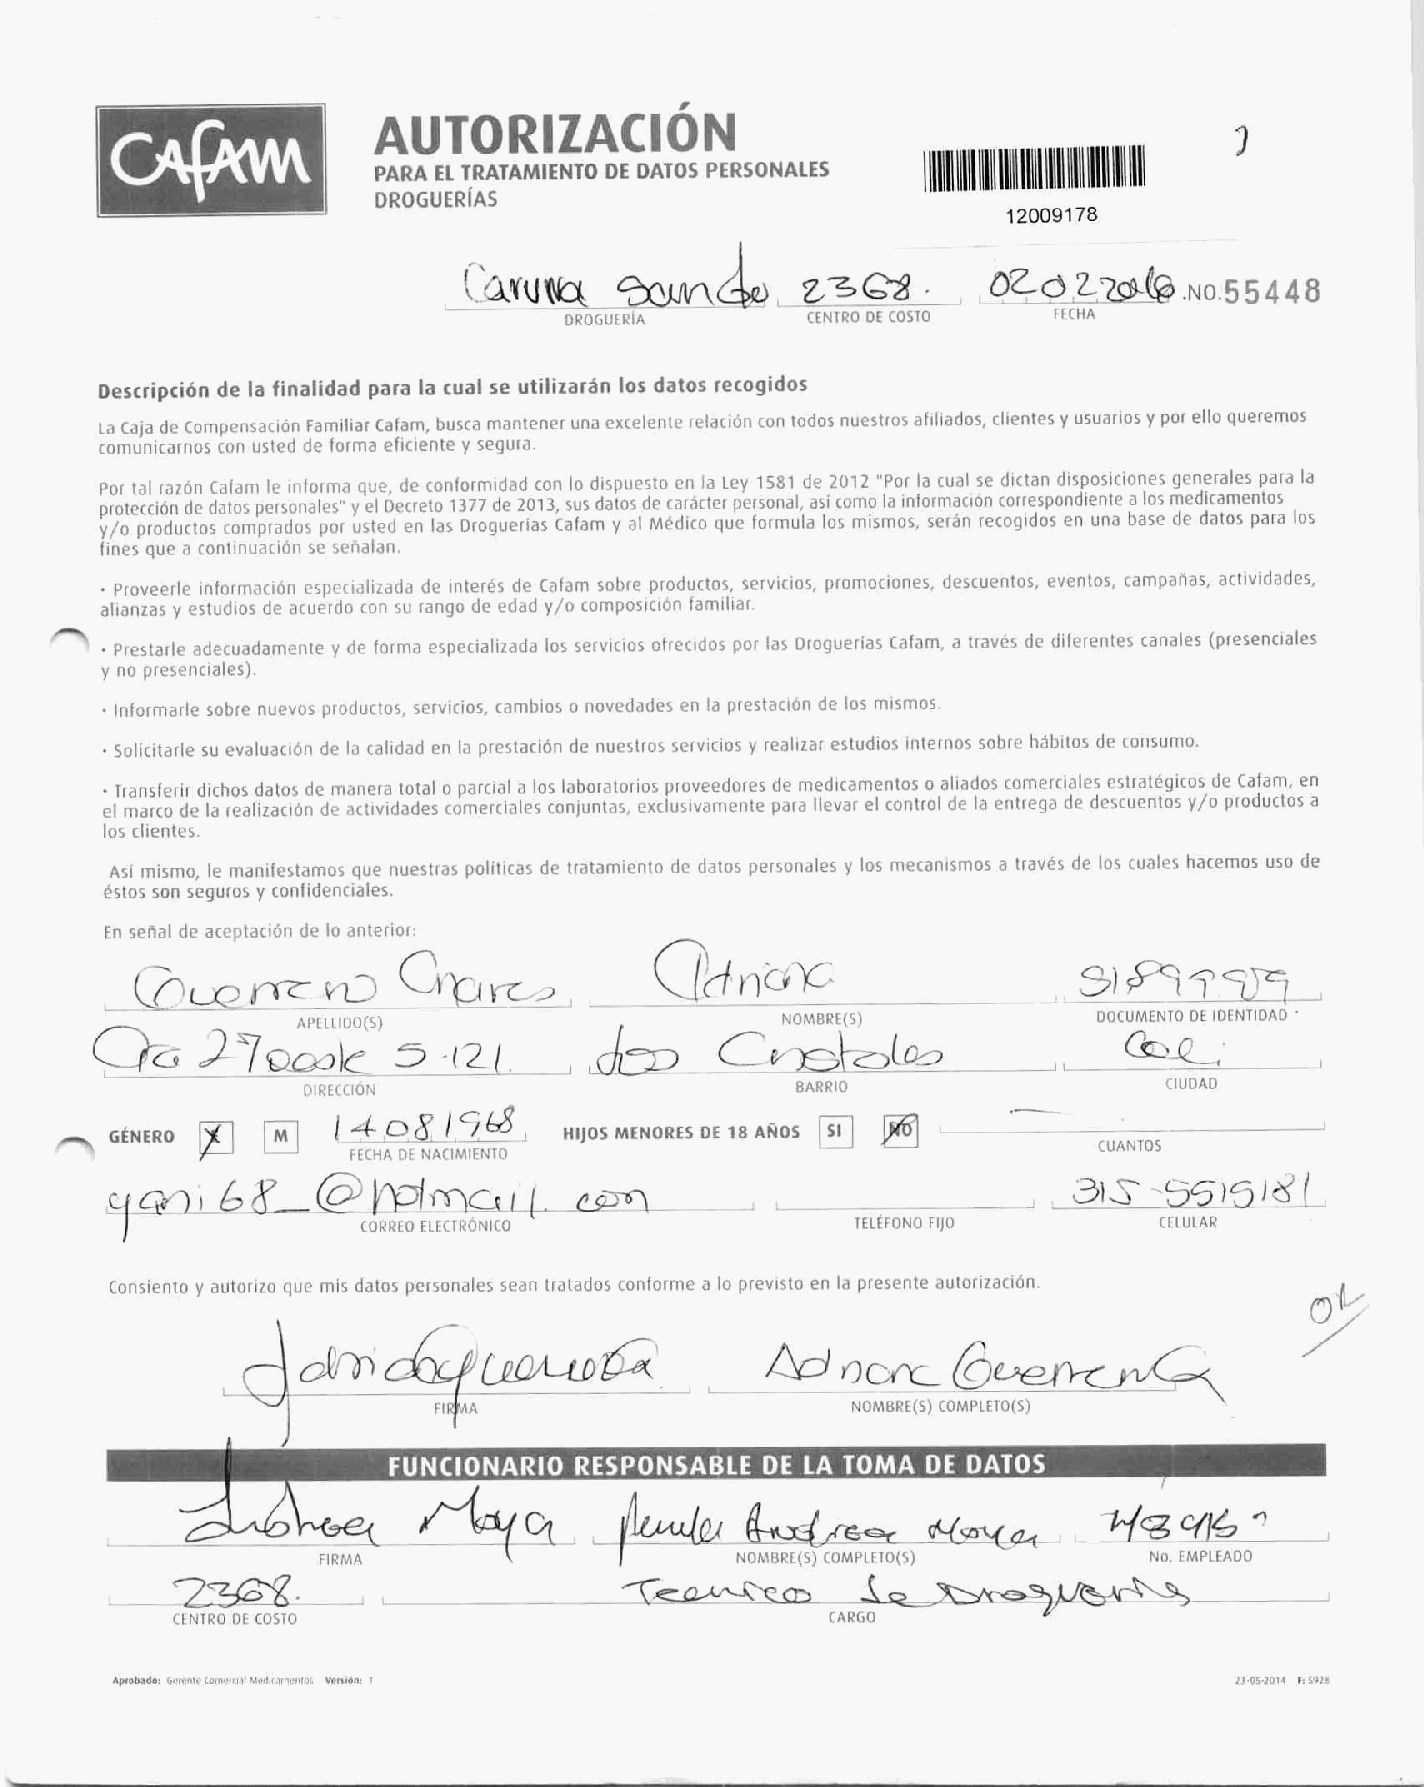 CAFAM
AUTORIZACIÓN
PARA EL TRATAMIENTO DE DATOS PERSONALES
DROGUERÍAS
12009178
2368. 02022016 NO.55448
DROGUERÍA CENTRO DE COSTO FECHA
Descripción de la finalidad para la cual se utilizarán los datos recogidos
La Caja de Compensación Familiar Cafam, busca mantener una excelente relación con todos nuestros afiliados, clientes y usuarios y por ello queremos
comunicarnos con usted de forma eficiente y segura.
Por tal razón Cafam le informa que, de conformidad con lo dispuesto en la Ley 1581 de 2012 "Por la cual se dictan disposiciones generales para la
protección de datos personales" y el Decreto 1377 de 2013, sus datos de carácter personal, asi como la información correspondiente a los medicamentos
y/o productos comprados por usted en las Droguerías Cafam y al Médico que formula los mismos, serán recogidos en una base de datos para los
fines que a continuación se señalan.
· Proveerle información especializada de interés de Cafam sobre productos, servicios, promociones, descuentos, eventos, campañas, actividades,
alianzas y estudios de acuerdo con su rango de edad y/o composición familiar.
· Prestarle adecuadamente y de forma especializada los servicios ofrecidos por las Droguerías Cafam, a través de diferentes canales (presenciales
y no presenciales).
· Informarle sobre nuevos productos, servicios, cambios o novedades en la prestación de los mismos.
· Solicitarle su evaluación de la calidad en la prestación de nuestros servicios y realizar estudios internos sobre hábitos de consumo.
· Transferir dichos datos de manera total o parcial a los laboratorios proveedores de medicamentos o aliados comerciales estratégicos de Cafam, en
el marco de la realización de actividades comerciales conjuntas, exclusivamente para llevar el control de la entrega de descuentos y/o productos a
los clientes.
Así mismo, le manifestamos que nuestras políticas de tratamiento de datos personales y los mecanismos a través de los cuales hacemos uso de
éstos son seguros y confidenciales.
En señal de aceptación de lo anterior:
Guerrero Chaves Adriana
APELLIDO(S) NOMBRE(S) DOCUMENTO DE IDENTIDAD
Cra 27 5-121 dos Cristales Cali
DIRECCIÓN BARRIO CIUDAD
GÉNERO X M 14081968 HIJOS MENORES DE 18 AÑOS SI NO
FECHA DE NACIMIENTO CUANTOS
yani68_@hotmail.com 315-5515181
CORREO ELECTRÓNICO TELÉFONO FIJO CELULAR
Consiento y autorizo que mis datos personales sean tratados conforme a lo previsto en la presente autorización.
OK
Adriana Guerrero
FIRMA NOMBRE(S) COMPLETO(S)
FUNCIONARIO RESPONSABLE DE LA TOMA DE DATOS
Andrea Moya Andrea Moya
FIRMA NOMBRE(S) COMPLETO(S) No. EMPLEADO
2368. Tecnico de Drogueria
CENTRO DE COSTO CARGO
Aprobado: Gerente Comercial Medicamentos Versión: 1 23-05-2014 F: 5928